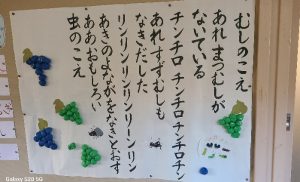 むしのこえ
あれまつむしが
ないている
チンチロ チンチロ チンチロチン
あれすずむしも
なきだした
リンリンリンリンリーンリン
あきのよながをなきとおす
ああおもしろい
虫のこえ
Galaxy S20 5G